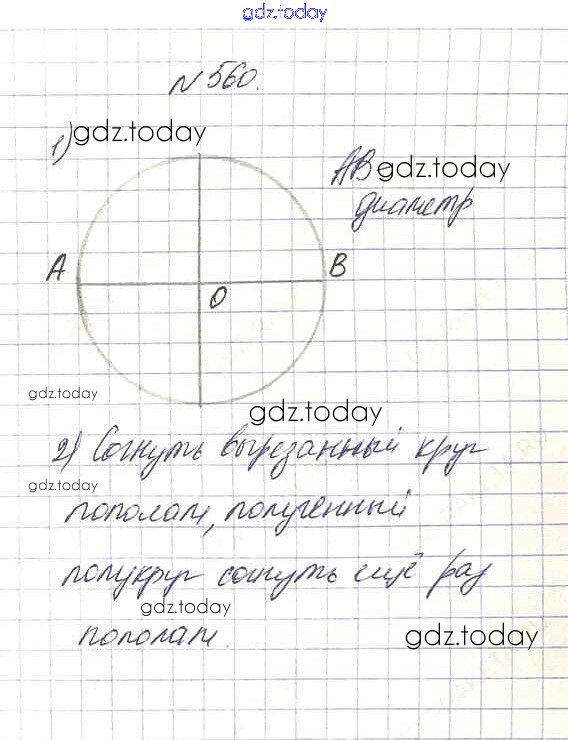 gdz.today
N 560.
1) gdz.today
AB - gdz.today
диаметр
A B
O
gdz.today
gdz.today
2) Согнуть вырезанный круг
gdz.today
пополам, полученный
полукруг согнуть ещё раз
gdz.today
пополам.
gdz.today